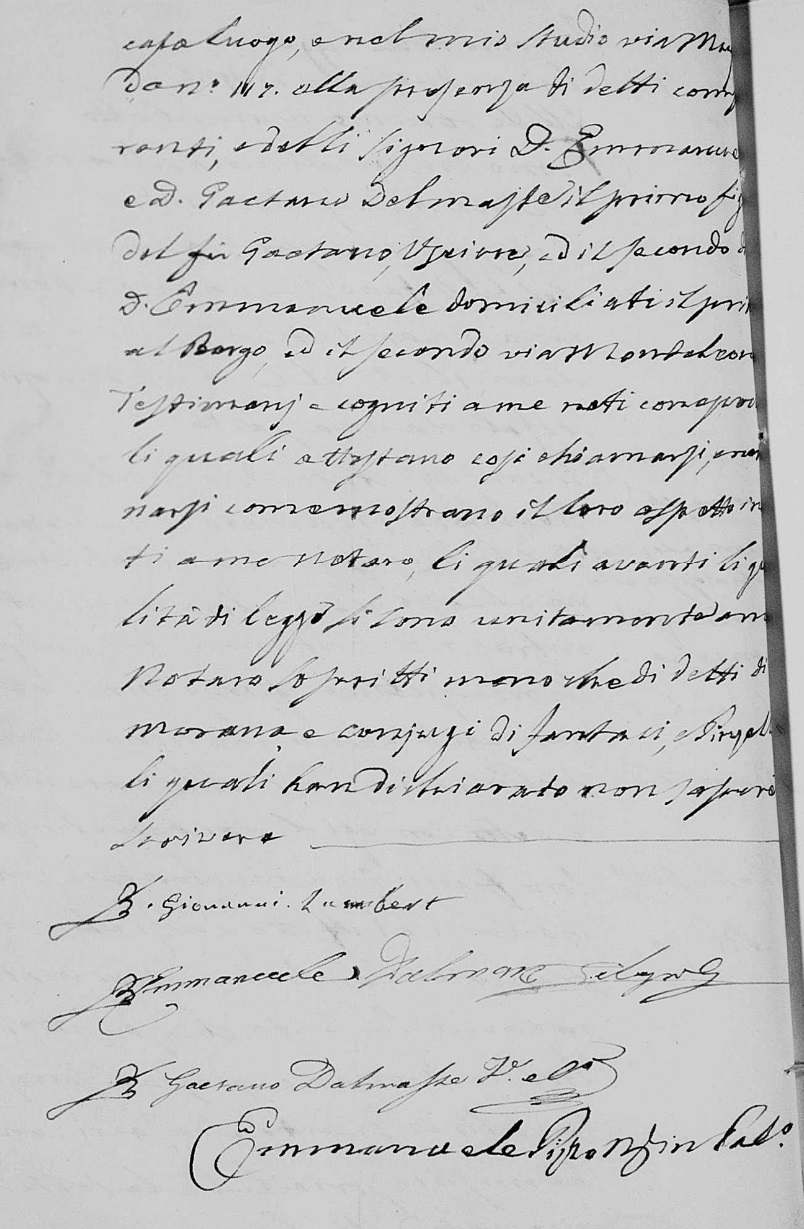 capoluogo, e nel mio studio via Ma
da n.° 117. alla presenza di detti comp
renti, e delli Signori D. Emmanuele
e D. Gaetano Delmasse il primo fi
del fu Gaetano, Usciere, ed il secondo d
D. Emmanuele domiciliati il pri
al Borgo, ed il secondo via Montaleon
Testimonj e cogniti a me noti con appro
li quali attestano così chiamarsi, e no
narsi come mostrano il loro aspetto in
ti a me Notaro, li quali avanti li qu
lità di legge si sono unitamente a me
Notaro sottoscritti meno che di detti di
morana e conjugi di fantaci, e Pingell
li quali han dichiarato non sapere
scrivere
Giovanni Lumbert
Emmanuele Dalmasse
Gaetano Dalmasse T. e
Emmanuele in Pal.°